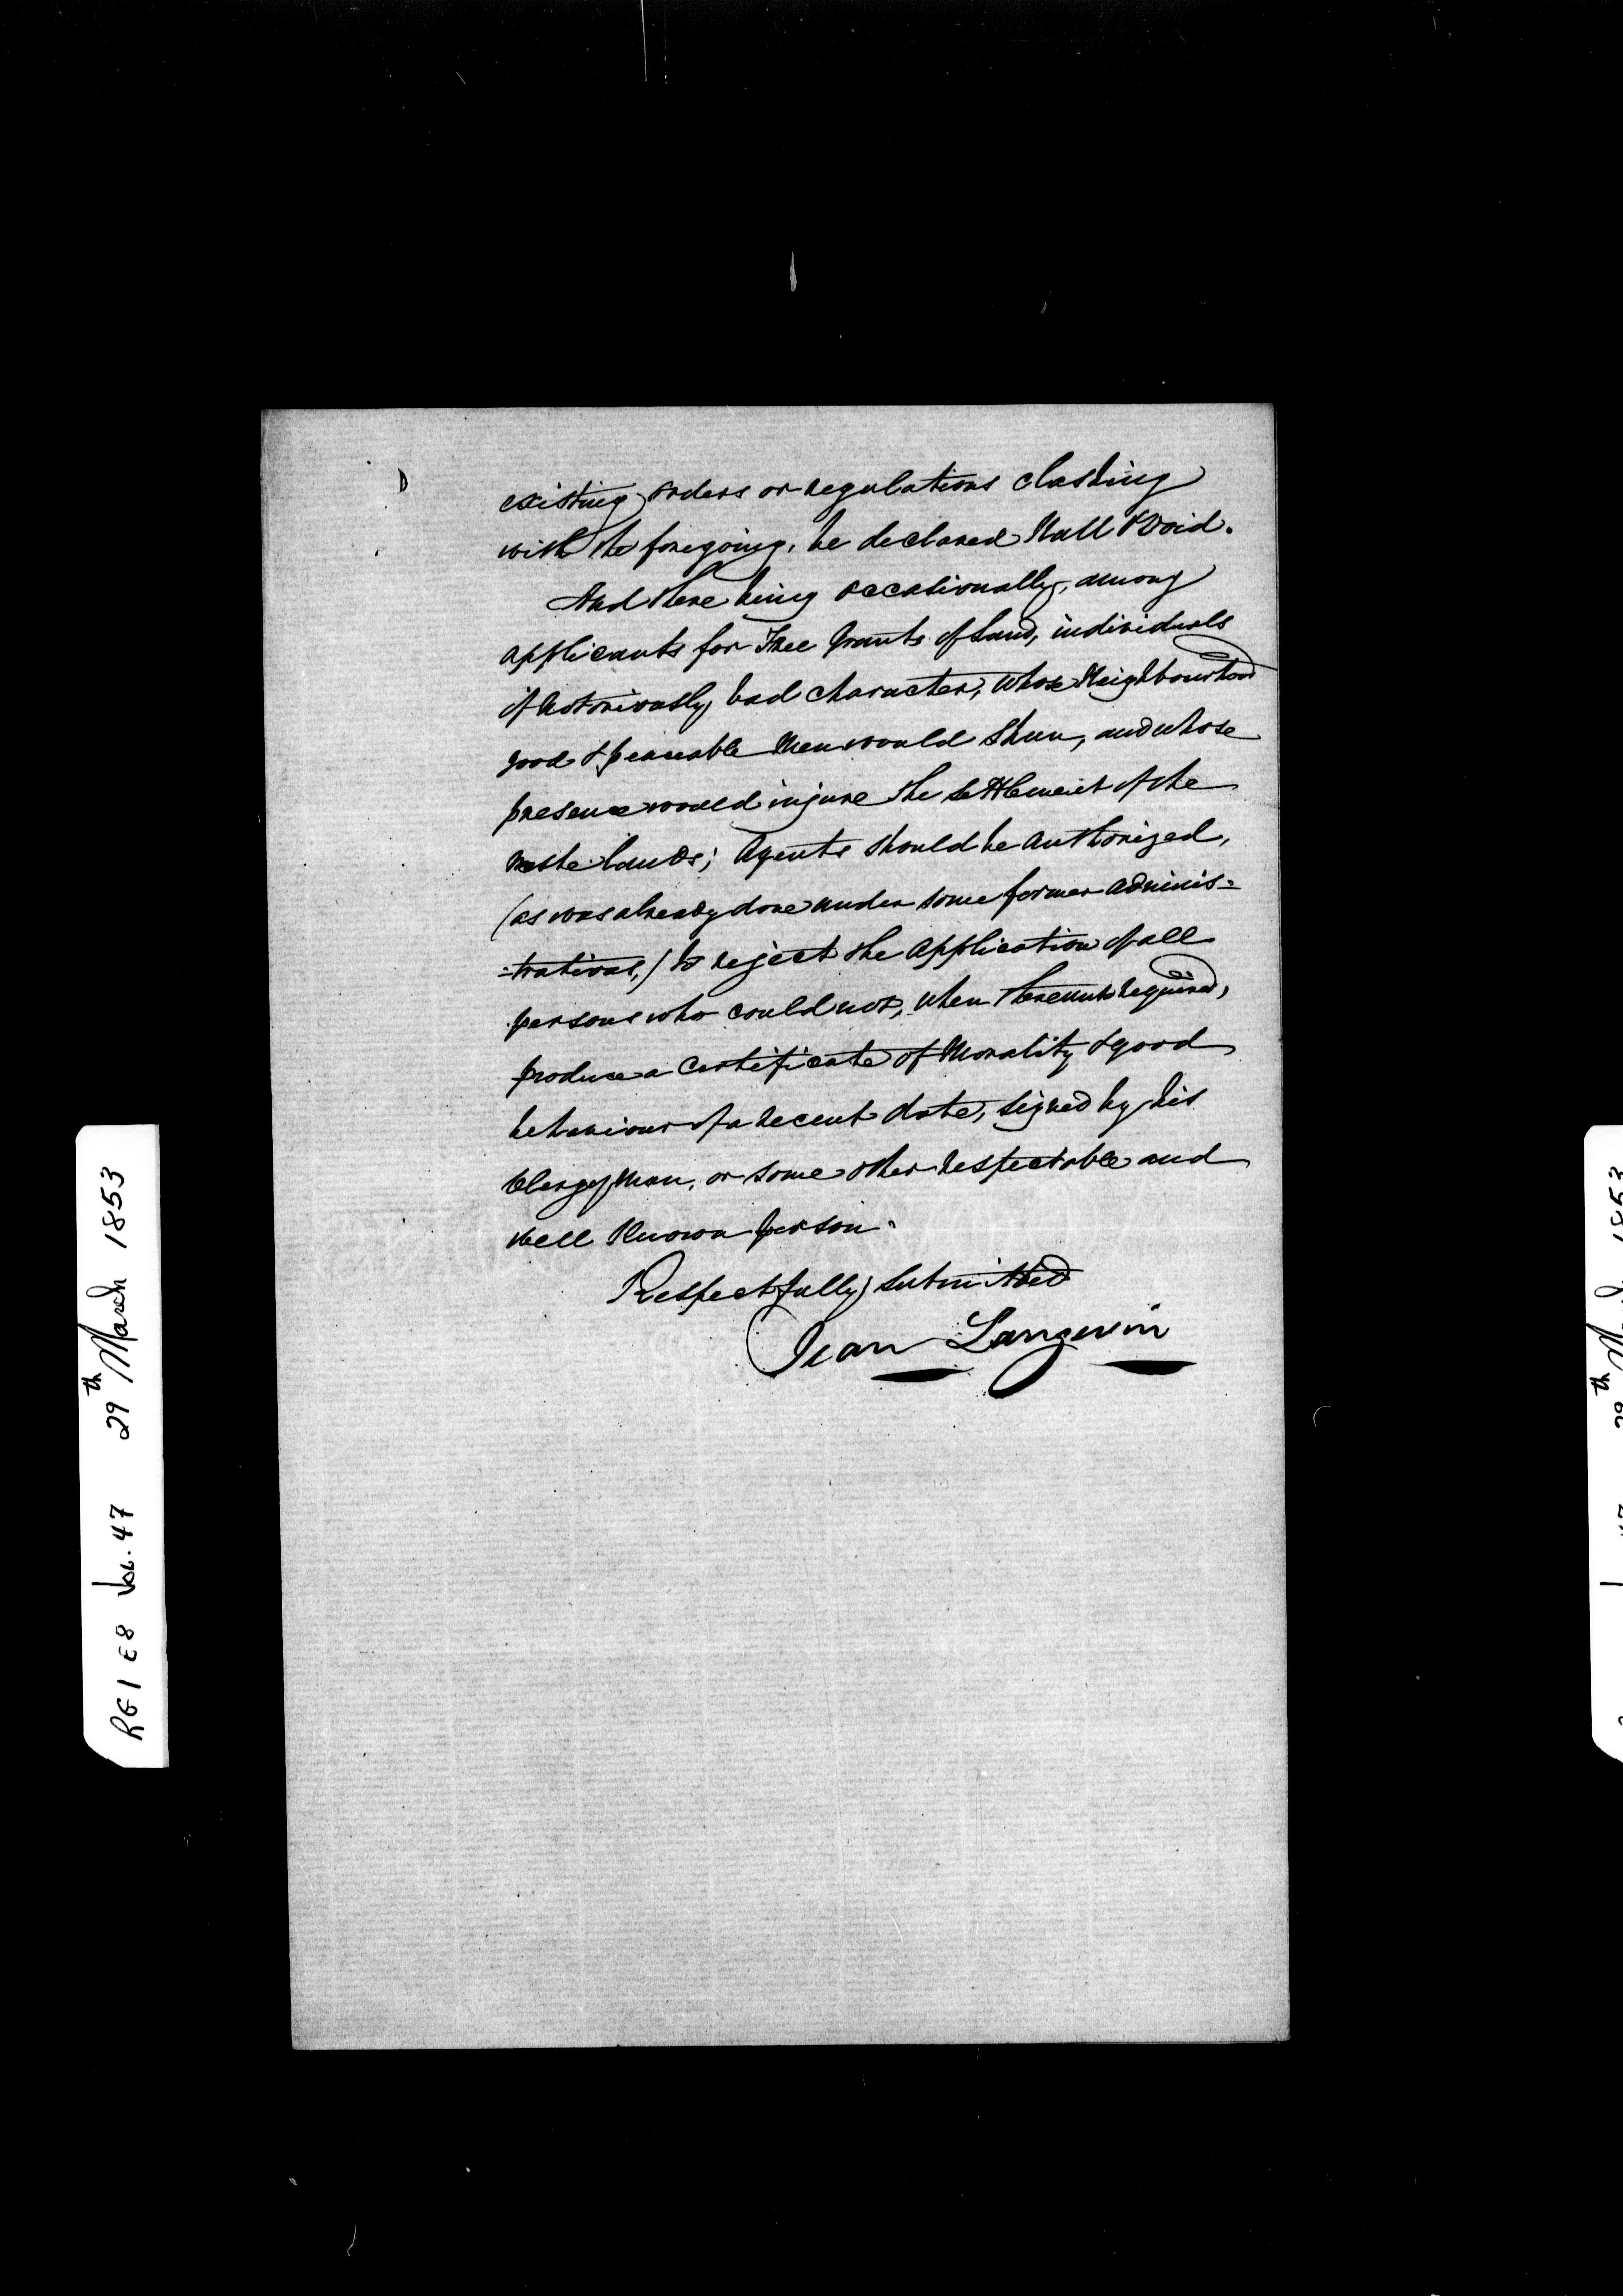 existing orders or regulations clashing
with the foregoing, be declared Null & Void.
And there being occasionally, among
applicants for Free Grants of Land, individuals
of notoriously bad character, whose Neighbourhood
good & peaceable Men would shun, and whose
presence would injure the settlement of the
waste lands; Agents should be authorized,
(as was already done under some former adminis=
=trations,) to reject the application of all
persons who could not, when thereunto required,
produce a certificate of Morality & good
behaviour of a recent date, signed by his
Clergyman, or some other respectable and
well Known person.
Respectfully submitted
Jean Langevin
RG 1 E8 Vol. 47 29th March 1853